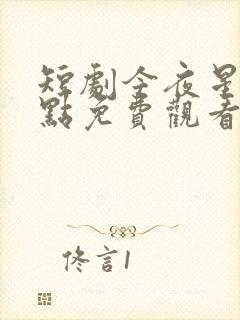 短劇今夜星
點免費觀看
佟言1